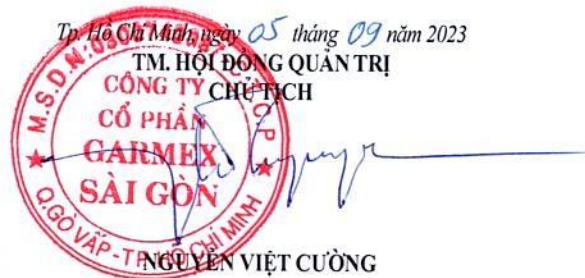 Tp. Hồ Chí Minh, ngày 05 tháng 09 năm 2023
TM. HỘI ĐỒNG QUẢN TRỊ
CHỦ TỊCH
M.S.D.N:
C.P
CÔNG TY
CỔ PHẦN
GARMEX
SÀI GÒN
Q.GÒ VẤP - TP HỒ CHÍ MINH
NGUYỄN VIỆT CƯỜNG